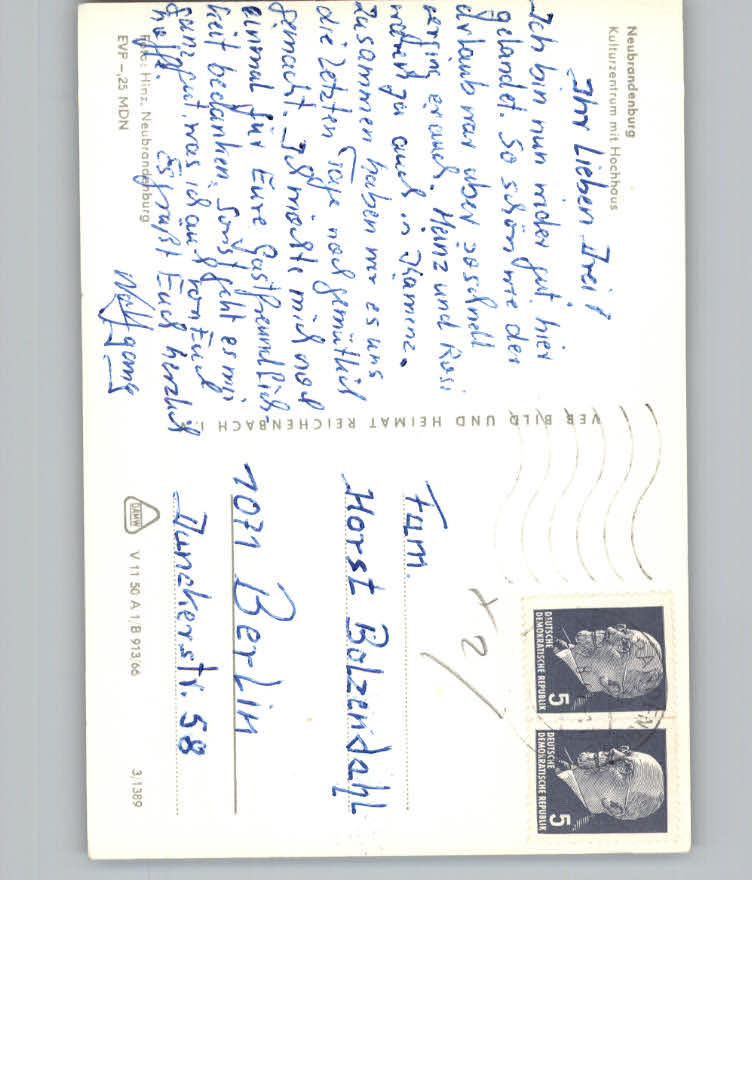 Neubrandenburg
Kulturzentrum mit Hochhaus
Ihr Lieben Drei!
Ich bin nun wider gut hier
gelandet. So schön wie der
Urlaub war aber so schnell
verging er auch. Heinz und Rosi
waren ja auch in
zusammen haben wir es uns
die letzten Tage noch gemütlich
gemacht. Ich möchte mich noch
einmal für Eure Gastfreundlich-
keit bedanken. Sonst geht es mir
ganz gut, was ich auch von Euch
hoffe. Es grüßt Euch herzlich
Wolfgang
Foto: Hinz, Neubrandenburg
EVP -,25 MDN
VEB BILD UND HEIMAT REICHENBACH I.
Fam.
Horst Bolzendahl
1071 Berlin
Dunckerstr. 58
+2
DEUTSCHE
DEMOKRATISCHE REPUBLIK
5
DEUTSCHE
DEMOKRATISCHE REPUBLIK
5
DAMW
V 11 50 A 1/B 913/66
3/1389